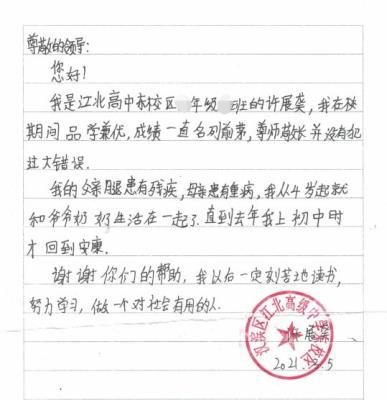 尊敬的领导:
您好!
我是江北高中东校区 年级 班的许展荣,我在校
期间品学兼优,成绩一直名列前茅,尊师敬长并没有犯
过大错误.
我的父亲腿患有残疾,母亲患有重病,我从4岁起就
和爷爷奶奶生活在一起了.直到去年我上初中时
才回到安康.
谢谢你们的帮助,我以后一定刻苦地读书,
努力学习,做一个对社会有用的人.
汉滨区江北高级中学东校区
许展荣
2021. .5